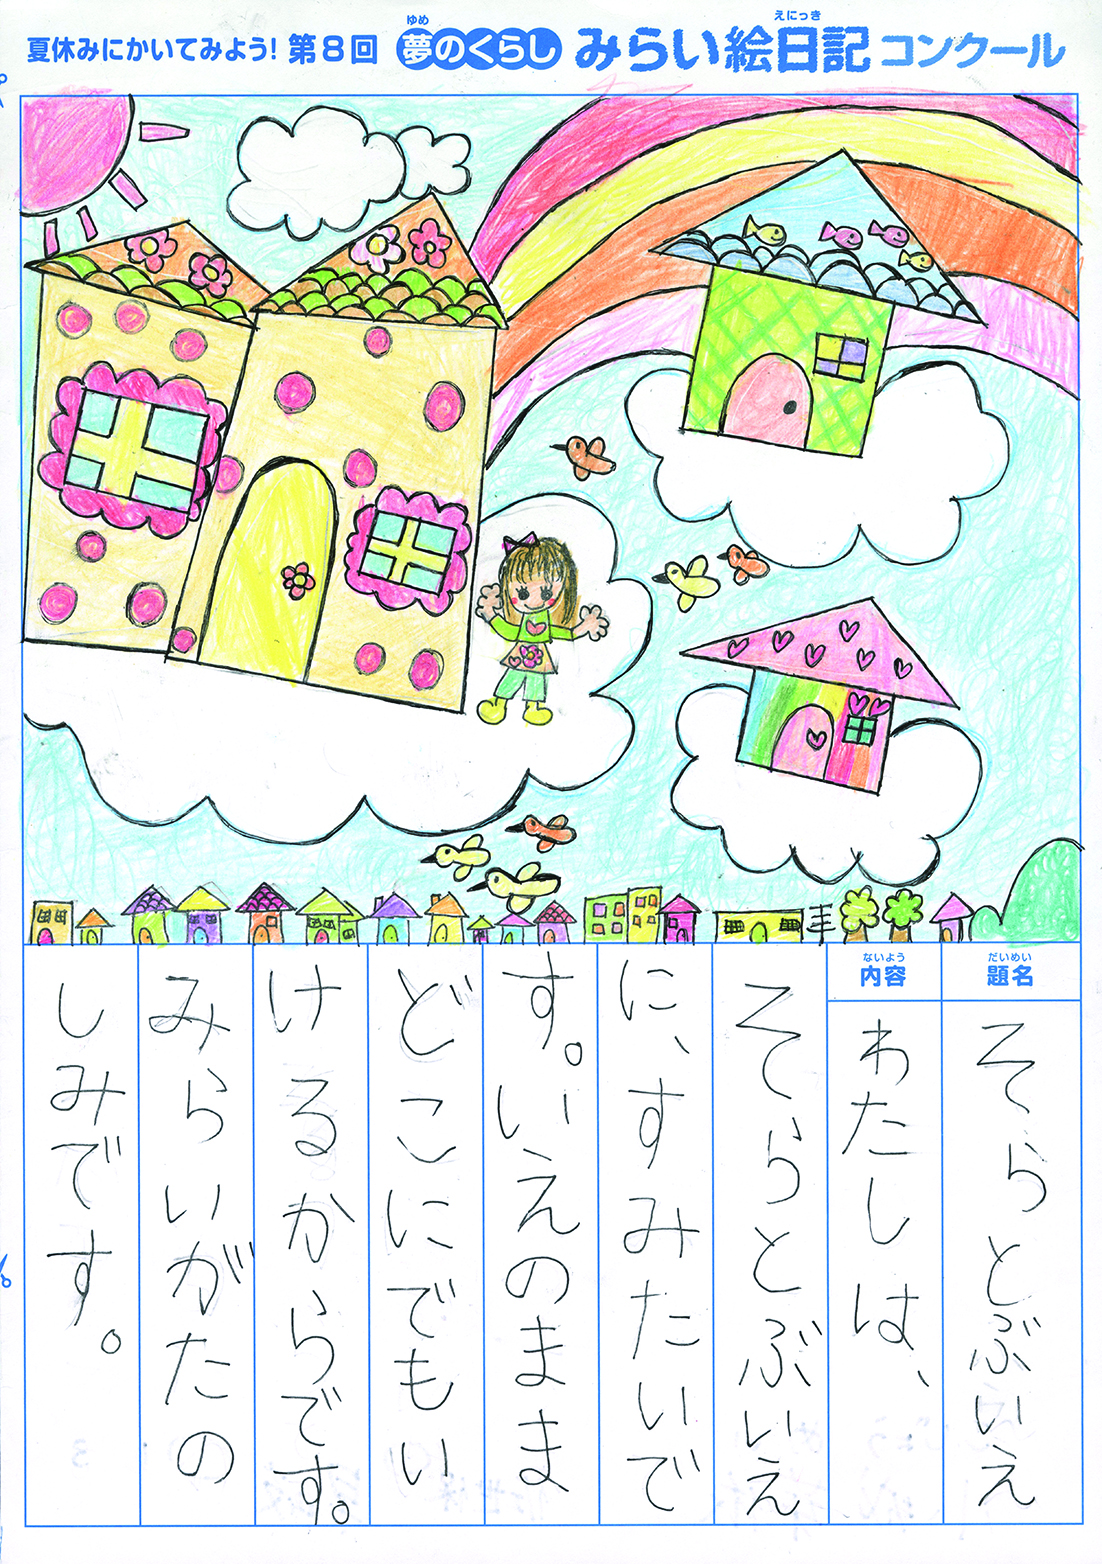 夏休みにかいてみよう! 第8回 夢のくらし みらい絵日記 コンクール
ゆめ
えにっき
だいめい
題名
そらとぶいえ
ないよう
内容
わたしは、
そらとぶいえ
に、すみたいで
す。いえのまま
どこにでもい
けるからです。
みらいがたの
しみです。